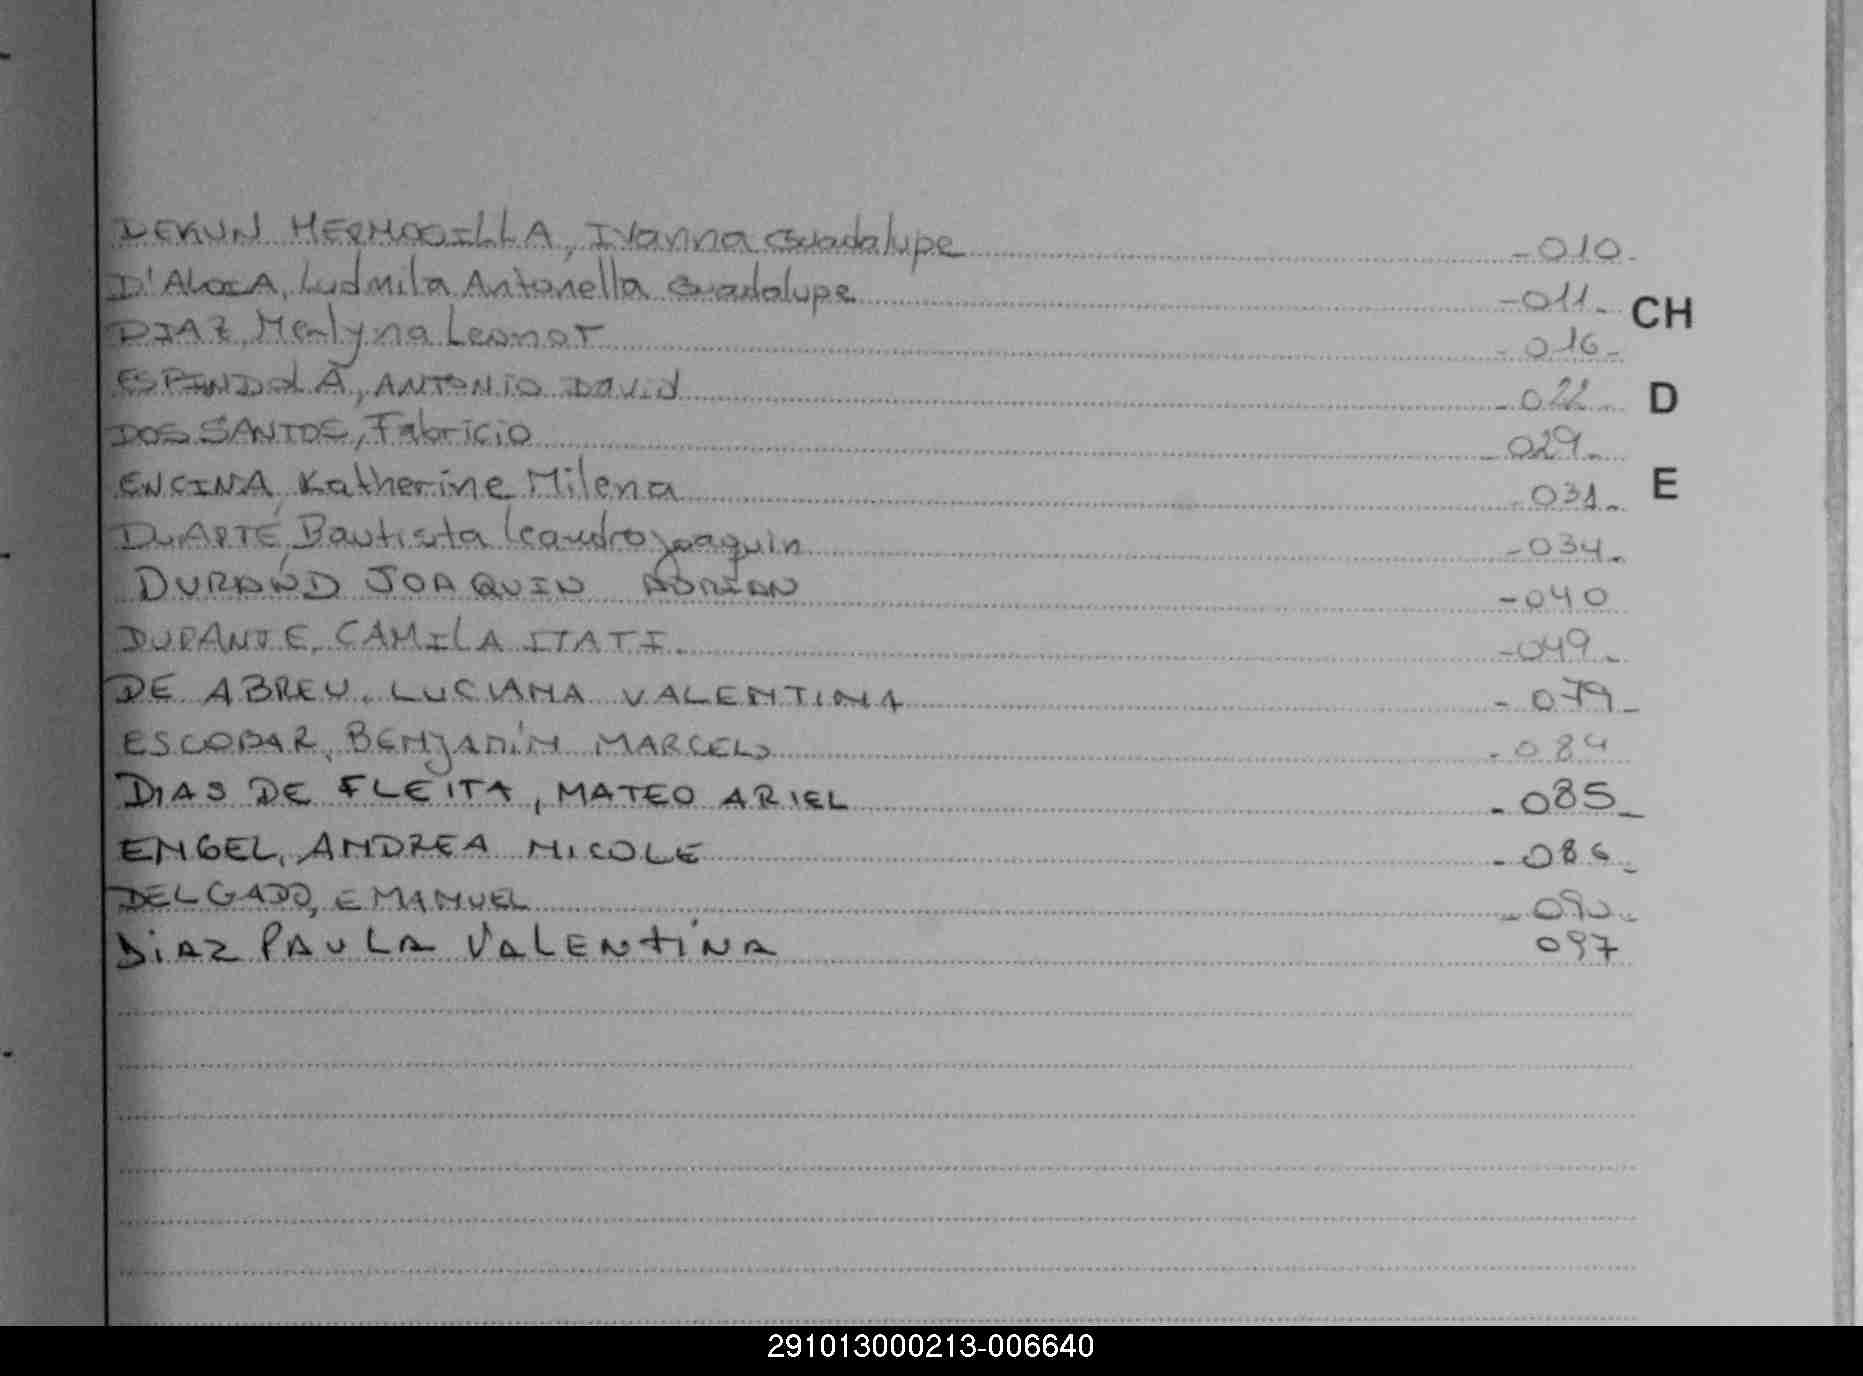 DEKUN HERMOSILLA, Ivanna Guadalupe -010-
D'ALOIA, Ludmila Antonella Guadalupe -011-
CH
DIAZ, Merlyna Leonor - 016-
ESPINDOLA, ANTONIO DaviD -022-
D
DOS SANTOS, Fabricio -029-
ENCINA, Katherine Milena -031-
E
DuARTE, Bautista leandro joaquin -034-
DURAND JOAQUIN ADRIAN -040
DURANTE, CAMILA ITATI. -049-
DE ABREU, LUCIANA VALENTINA - 079-
ESCOBAR, BENjAMíN MARCELO -084
DIAS DE FLEITA, MATEO ARIEL - 085-
ENGEL, ANDREA NICOLE - 086-
DELGADO, EMANUEL - 090-
DiAZ PAULA VALENtiNA 097
291013000213-006640